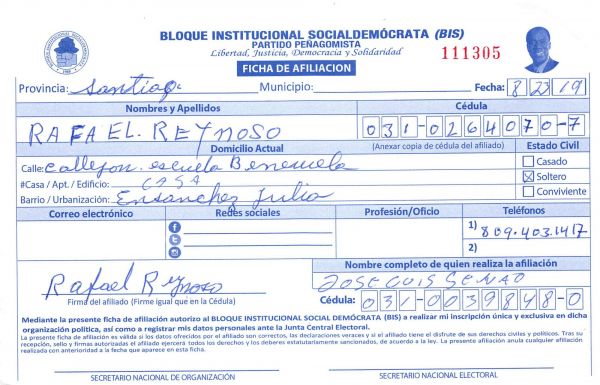 BLOQUE INSTITUCIONAL SOCIALDEMÓCRATA (BIS)
PARTIDO PEÑAGOMISTA
Libertad, Justicia, Democracia y Solidaridad
111305
FICHA DE AFILIACION
Provincia: Santiago Municipio: Fecha: 8 23 19
Nombres y Apellidos Cédula
RAFAEL REYNOSO 031-0264070-7
Domicilio Actual (Anexar copia de cédula del afiliado) Estado Civil
Calle: Callejon escuela Benezuela Casado
#Casa / Apt. / Edificio: Soltero
Barrio / Urbanización: Ensanchez Julia Conviviente
Correo electrónico Redes sociales Profesión/Oficio Teléfonos
1) 809.403.1417
2)
Rafael Reynoso
Firma del afiliado (Firme igual que en la Cédula)
Nombre completo de quien realiza la afiliación
JOSE LUIS
Cédula: 031-0039848-0
Mediante la presente ficha de afiliación autorizo al BLOQUE INSTITUCIONAL SOCIAL DEMÓCRATA (BIS) a realizar mi inscripción única y exclusiva en dicha
organización política, así como a registrar mis datos personales ante la Junta Central Electoral.
La presente ficha de afiliación es válida si los datos ofrecidos por el afiliado son correctos, las declaraciones veraces y si el afiliado tiene el disfrute de sus derechos civiles y políticos. Tras su
recepción, sello y firmas autorizadas el afiliado ejercerá todos los derechos y los deberes estatutariamente sancionados, de acuerdo a la ley. La presente afiliación anula cualquier afiliación
realizada con anterioridad a la fecha que aparece en esta ficha.
SECRETARIO NACIONAL DE ORGANIZACIÓN SECRETARIO NACIONAL ELECTORAL